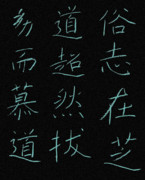 而慕道
道超然拔
俗志在芝